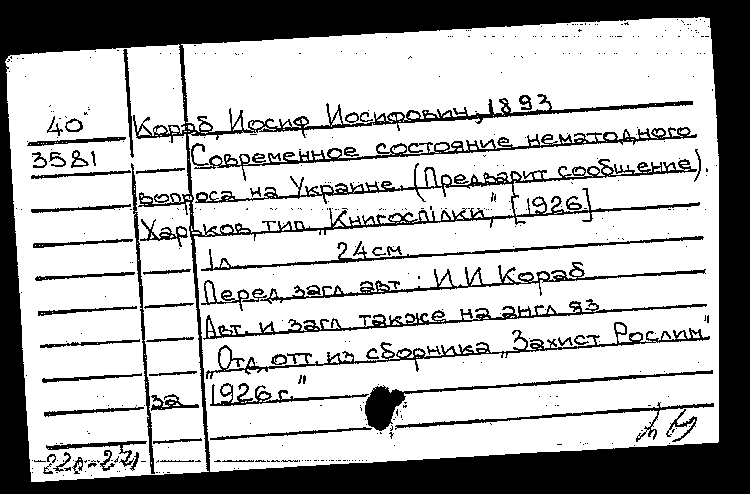 40 Кораб, Иосиф Иосифович, 1893
3581 Современное состояние нематодного
вопроса на Украине. (Предварит сообщение).
Харьков, тип. „Книгоспілки“, [1926]
1 л. 24 см.
Перед загл. авт.: И. И. Кораб
Авт. и загл. также на англ яз.
„Отд. отт. из сборника „Захист Рослин“
за 1926 г.“